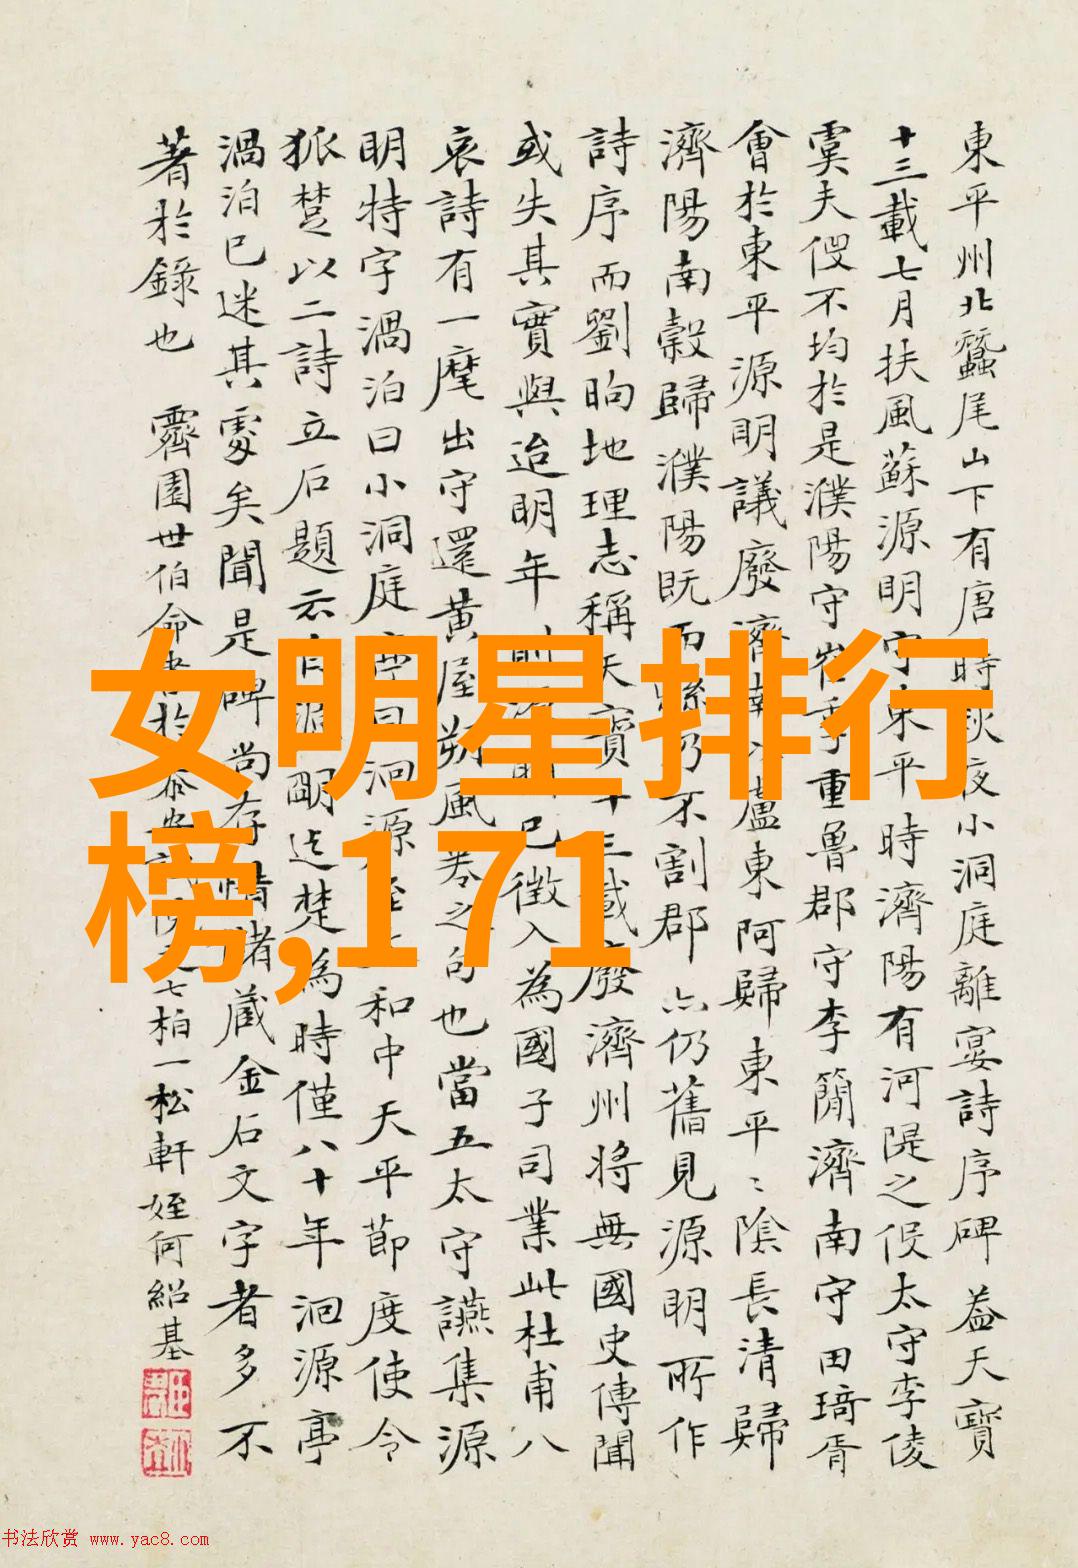 東平州北蠶尾山下有唐時秋夜小洞庭離宴詩序碑蓋天寶
十三載七月扶風蘇源明守東平時濟陽有河隄之役太守李倰
虞夫役不均於是濮陽守崔季重魯郡守李簡濟南守田琦胥
會於東平源明議廢濟南盧東阿歸東平陰長清歸
濟陽南穀歸濮陽既而縣仍不割郡亦仍舊見源明所作
詩序而劉昫地理志稱天寶十三載廢濟州將無國史傳聞
或失其實與迨明年則源明已徵入為國子司業此杜甫八
哀詩有一麾出守還黃屋朔風卷之句也當五太守讌集源
明特字渦泊曰小洞庭洄源和中天平節度使令
狐楚以二詩立石題云自源明迄楚為時僅八十年洄源亭
渦泊已迷其處矣聞是碑尚存惜諸藏金石文字者多不
著於錄也 霽園世伯命書於泰安試院之七柏一松軒 姪何紹基
女明星排行
榜,171
书法欣赏 www.yac8.com